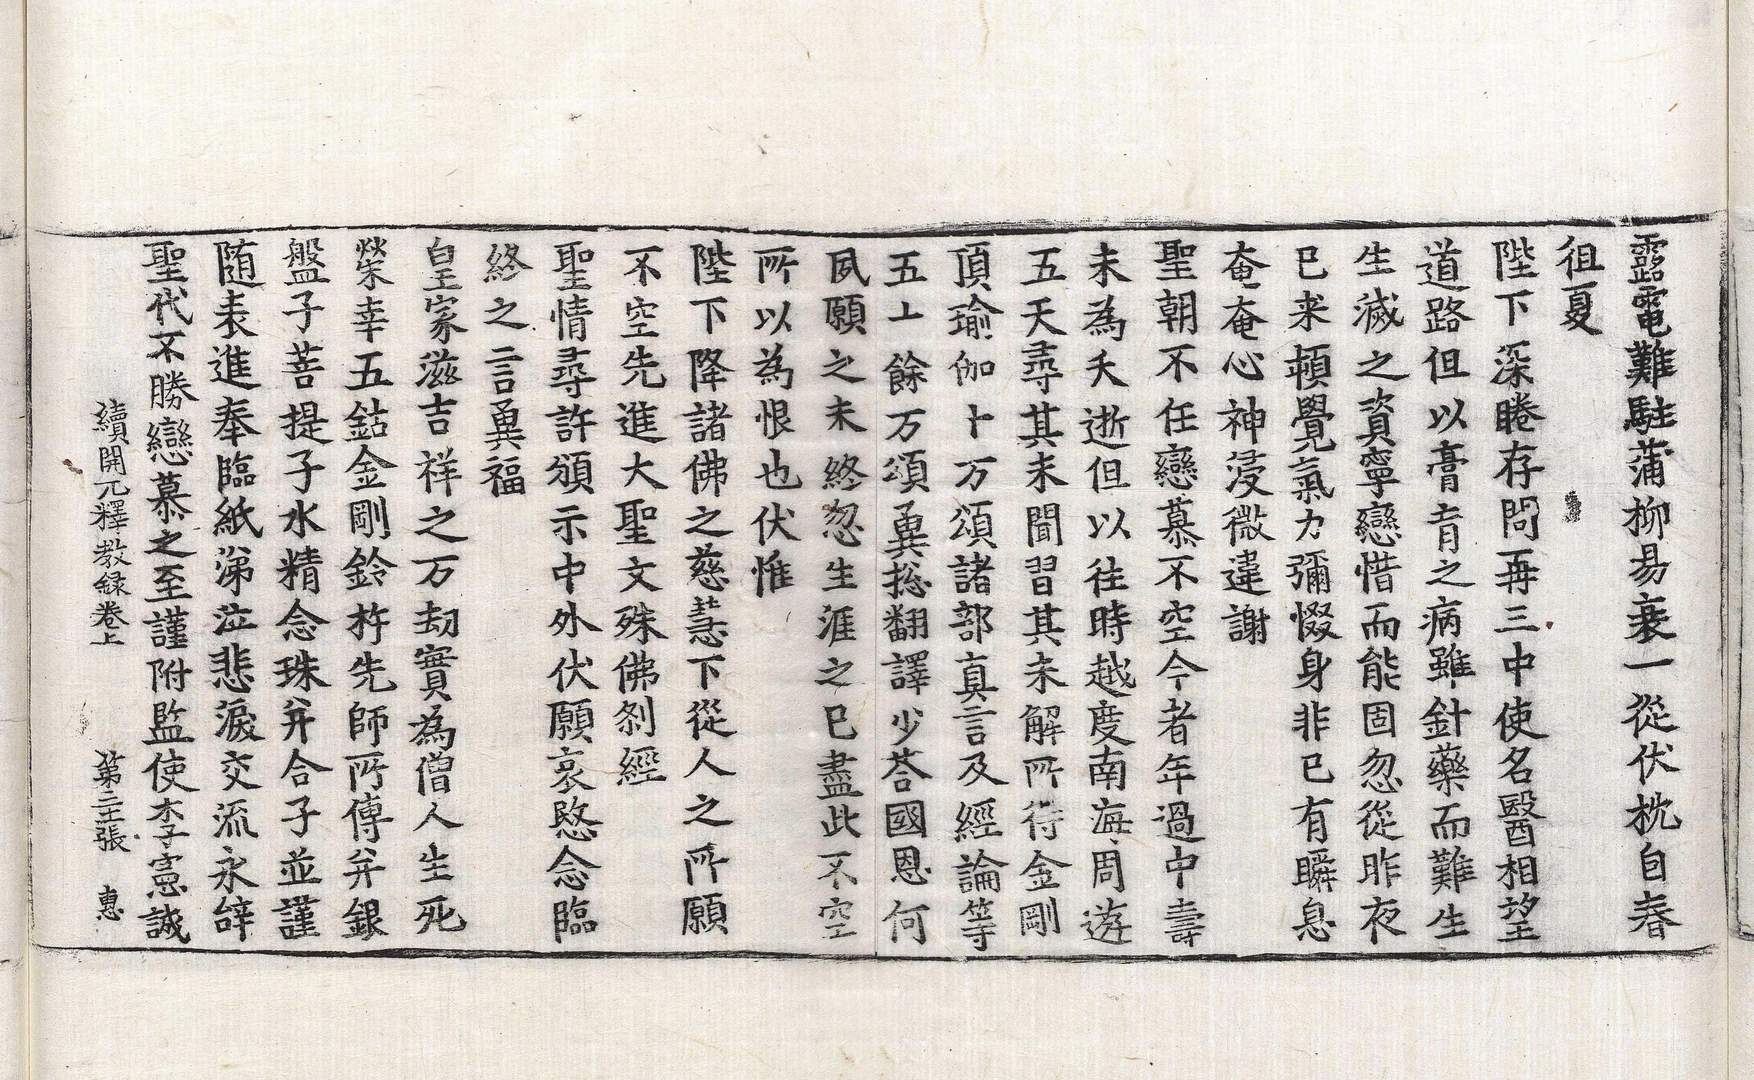 露電難駐蒲柳易衰一從伏枕自春
徂夏
陛下深睠存問再三中使名醫相望
道路但以膏肓之病雖針藥而難生
生滅之資寧戀惜而能固忽從昨夜
已来頓覺氣力彌惙身非已有瞬息
奄奄心神浸微違謝
聖朝不任戀慕不空今者年過中壽
未為夭逝但以往時越度南海周遊
五天尋其未聞習其未解所得金剛
頂瑜伽十万頌諸部真言及經論等
五十餘万頌冀揔翻譯少荅國恩何
夙願之未終忽生涯之已盡此不空
所以為恨也伏惟
陛下降諸佛之慈慧下從人之所願
不空先進大聖文殊佛剎經
聖情尋許頒示中外伏願哀愍念臨
終之一言冀福
皇家滋吉祥之万劫實為僧人生死
榮幸五鈷金剛鈴杵先師所傳并銀
盤子菩提子水精念珠并合子並謹
随表進奉臨紙涕泣悲淚交流永辝
聖代不勝戀慕之至謹附監使李憲誠
續開元釋教録卷上 第二十張 惠